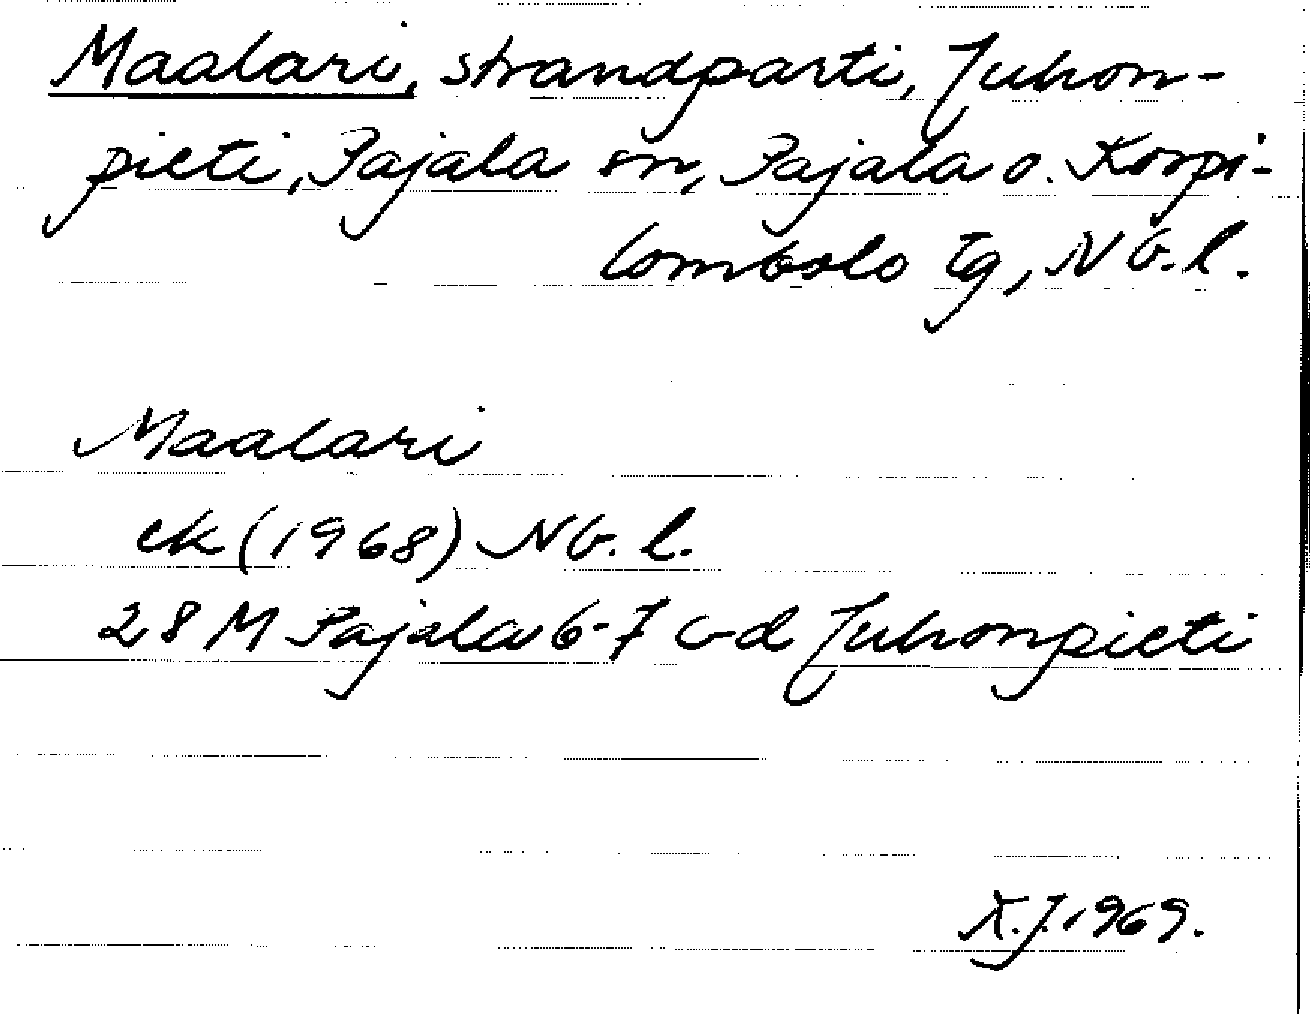 Maalari, strandparti, Juhon-
pieti, Pajala sn, Pajala o. Korpi-
lombolo tg, Nb.l.
Maalari
ek (1968) Nb. l.
28 M Pajala 6-7 c-d Juhonpieti
K.J. 1969.